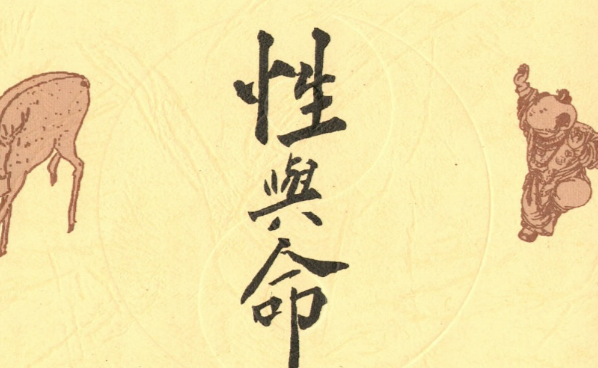 性與命